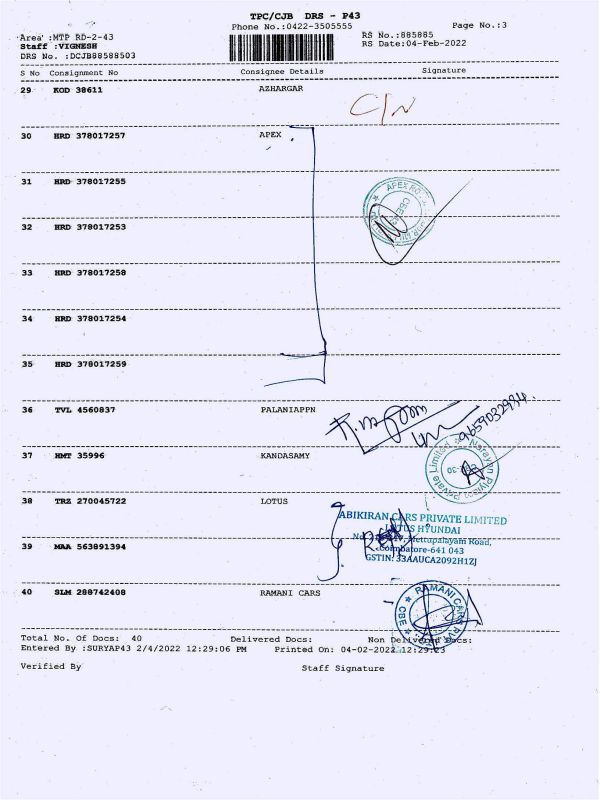 TPC/CJB DRS - P43
Phone No.:0422-3505555
Page No.:3
Area :MTP RD-2-43
RS No.:885885
Staff :VIGNESH
RS Date:04-Feb-2022
DRS No. :DCJB88588503
S No Consignment No Consignee Details Signature
29 KOD 38611 AZHARGAR
C/N
30 HRD 378017257 APEX
31 HRD 378017255
APEX
CBE
32 HRD 378017253
33 HRD 378017258
34 HRD 378017254
35 HRD 378017259
36 TVL 4560837 PALANIAPPN
9659032994
37 HMT 35996 KANDASAMY
Private Limited
38 TRZ 270045722 LOTUS
ABIKIRAN CARS PRIVATE LIMITED
LOTUS HYUNDAI
Mettupalayam Road,
39 MAA 563891394
Coimbatore-641 043
GSTIN: 33AAUCA2092H1ZJ
40 SLM 288742408 RAMANI CARS
RAMANI CARS PVT
CBE
Total No. Of Docs: 40 Delivered Docs: Non Delivered Docs:
Entered By :SURYAP43 2/4/2022 12:29:06 PM Printed On: 04-02-2022 12:29:23
Verified By Staff Signature